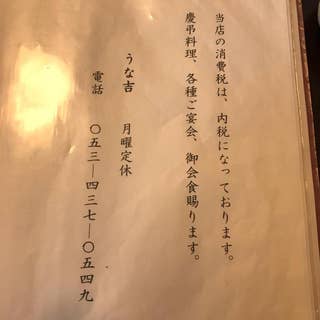 当店の消費税は、内税になっております。
慶弔料理、各種ご宴会、御会食賜ります。
うな吉　月曜定休
電話　〇五三―四三七―〇五四九